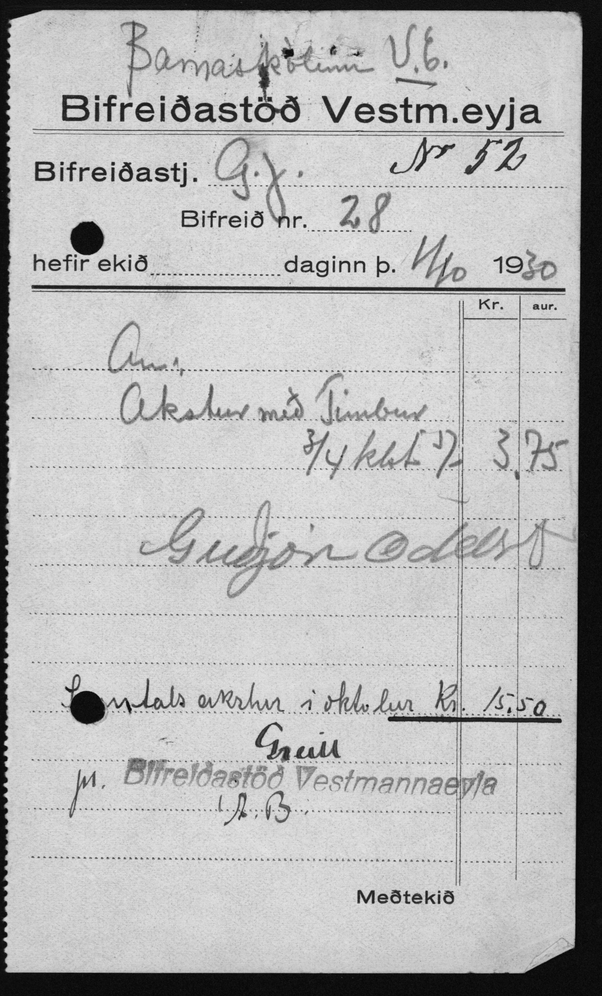 Barnaskólinn V.E.
Bifreiðastöð Vestm.eyja
Bifreiðastj. G.J. Nr 52
Bifreið nr. 28
hefir ekið daginn þ. 11/10 1930
Kr. aur.
Akstur með Timbur
3/4 klst 5/- 3.75
Guðjón
Samtals akstur i oktober Kr. 15.50
Greitt
pr. Bifreiðastöð Vestmannaeyja
Meðtekið